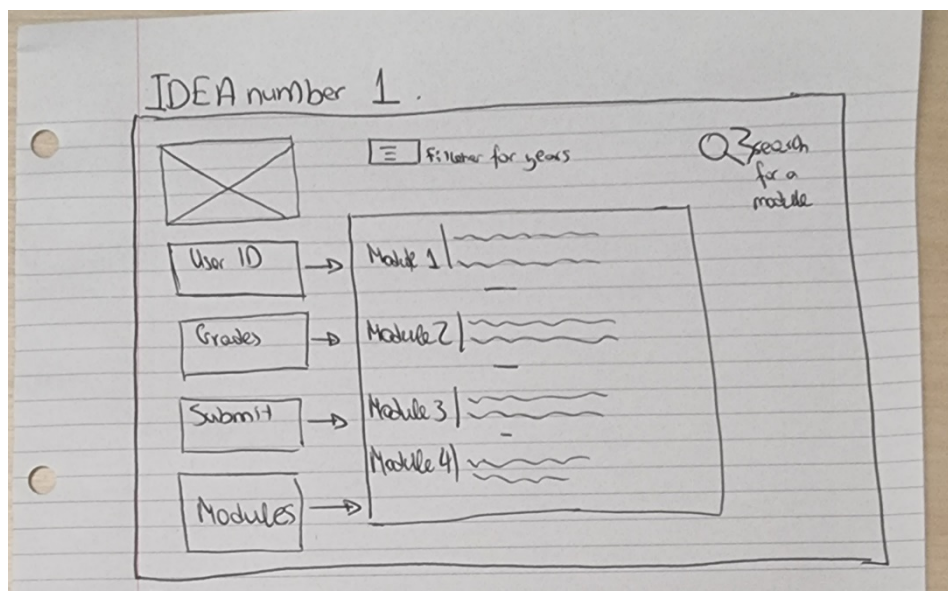 IDEA number 1.
Filleter for years
search
for a
module
User ID
Grades
Submit
Modules
Module 1
Module 2
Module 3
Module 4